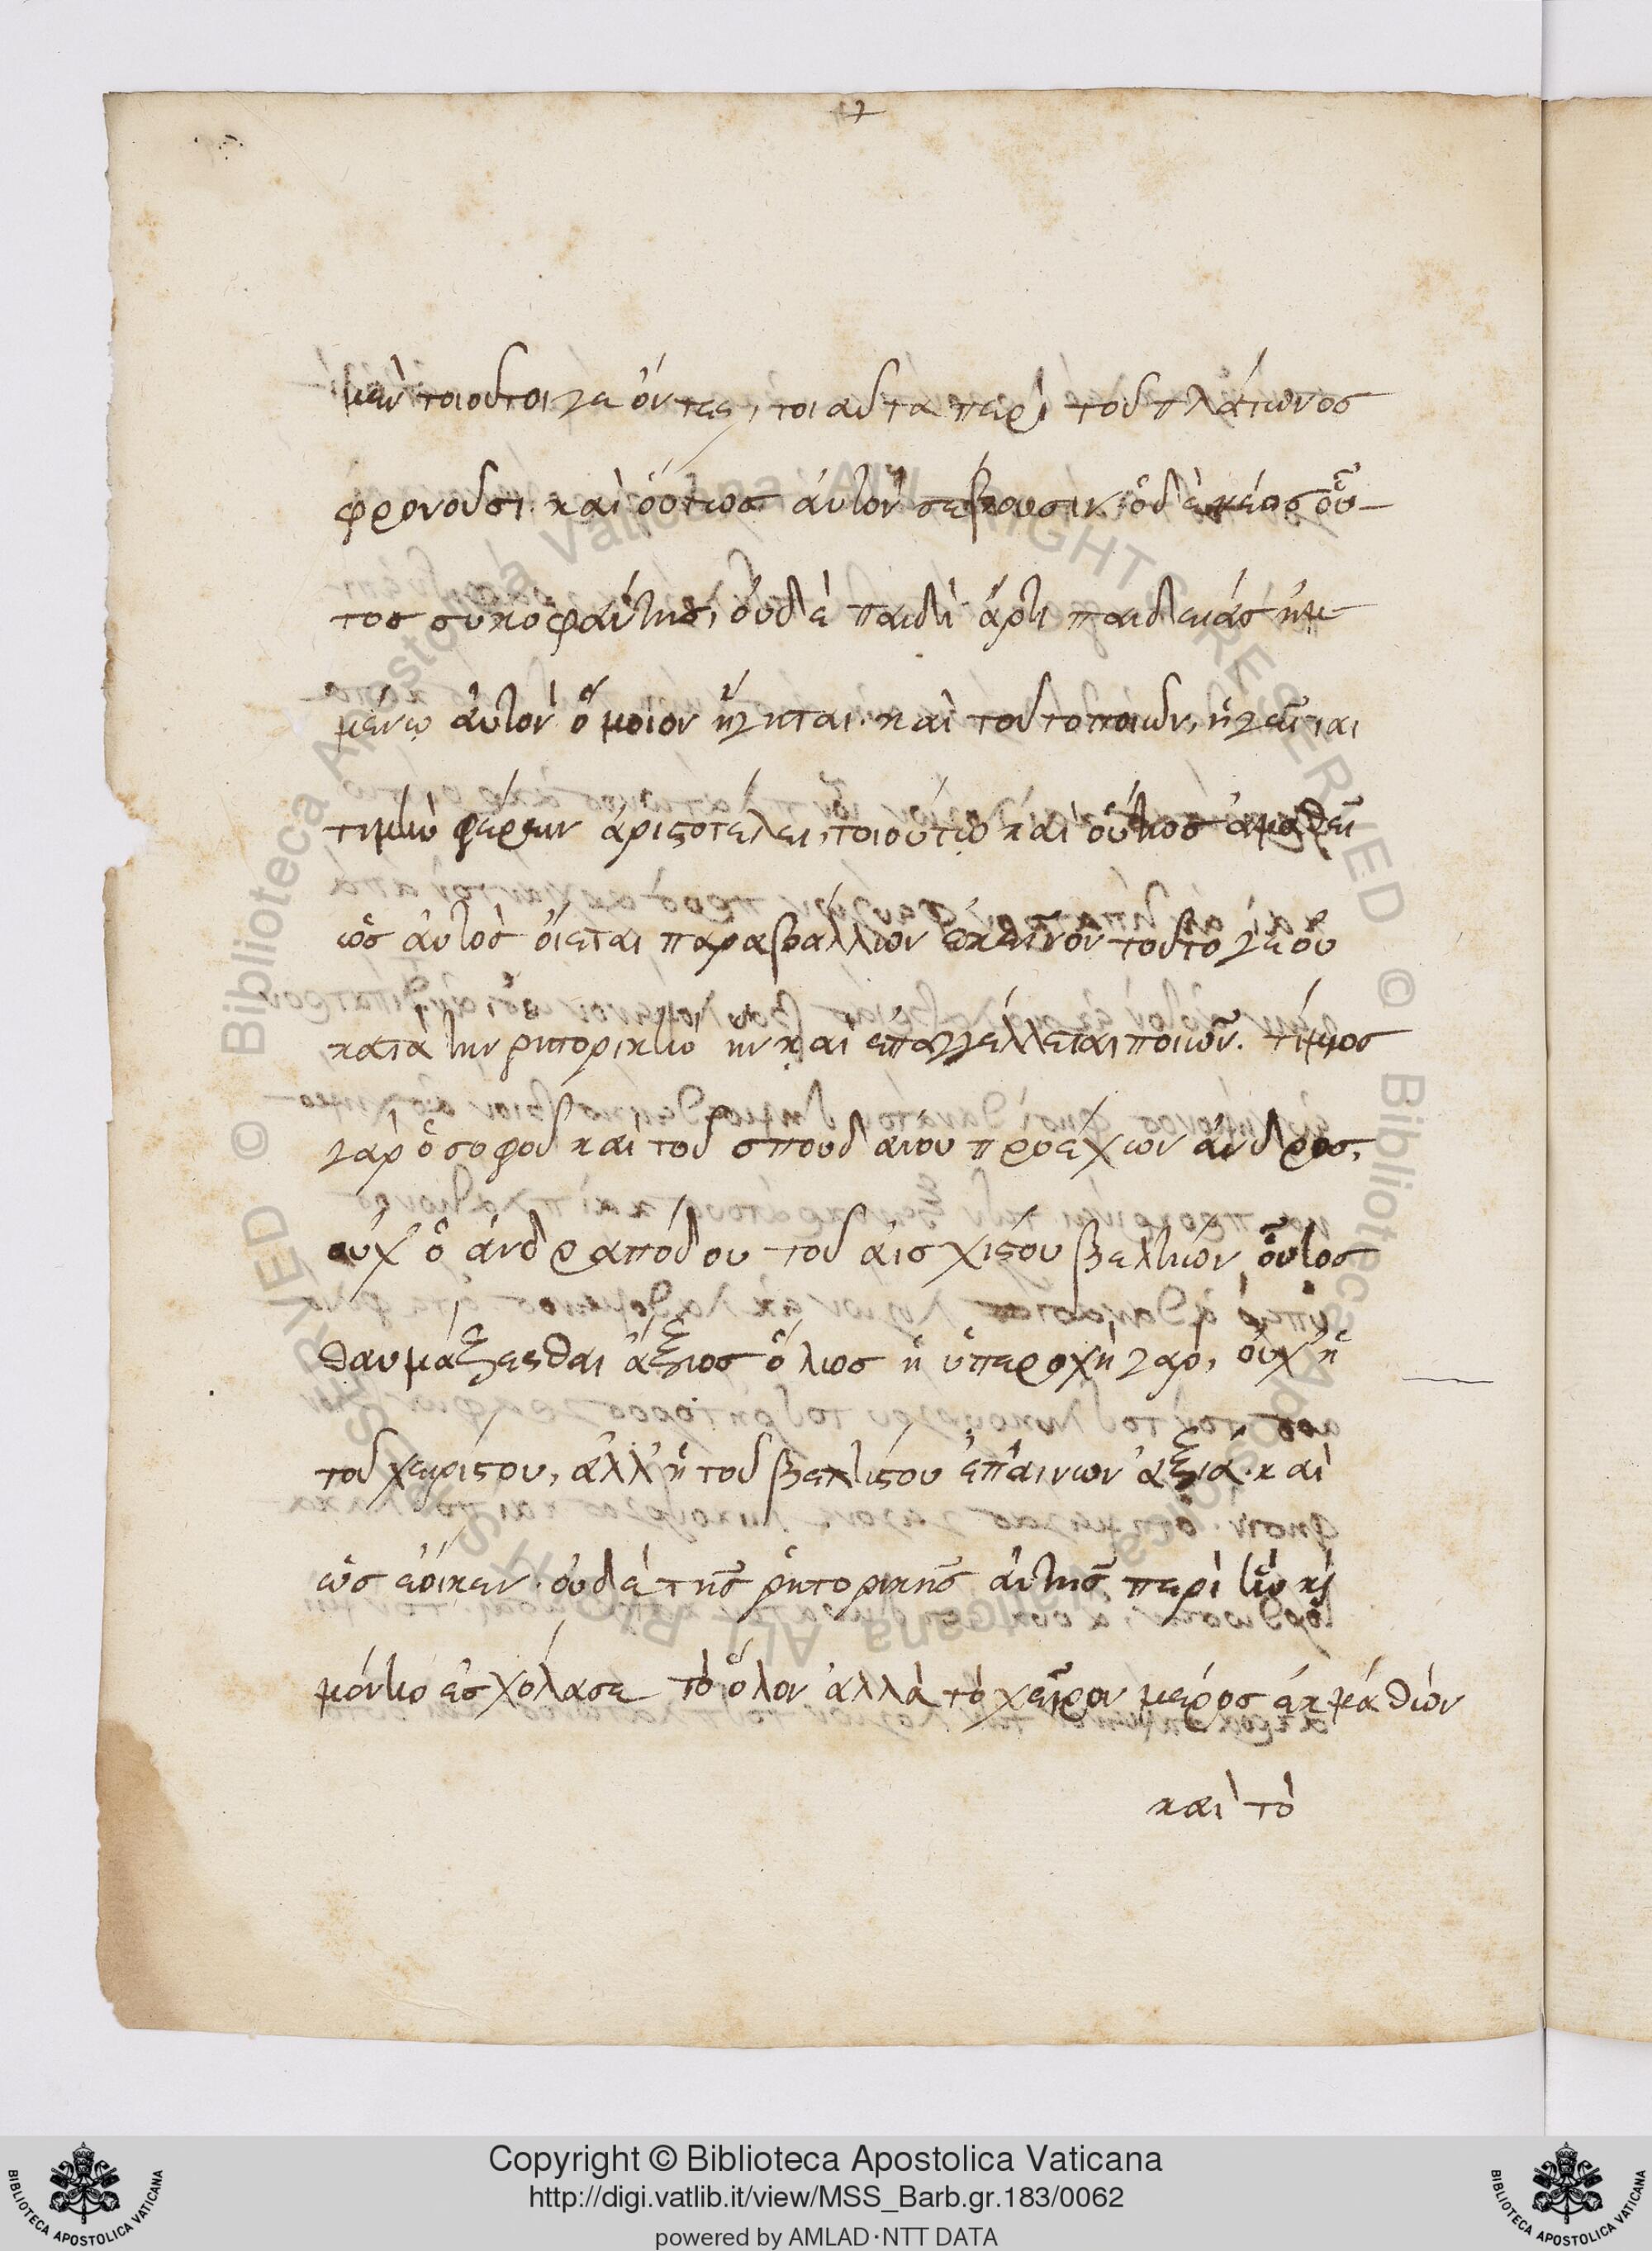 μὲν τοιοῦτοι γε ὄντες, τοιαῦτα περὶ τοῦ πλάτωνος
φρονοῦσι. καὶ οὕτως αὐτὸν σέβουσιν. ὁ δὲ νέος οὗ-
τος συκοφάντης, οὐδὲ παιδὶ ἄρτι παιδείας ἡμ-
μένῳ αὐτὸν ὅμοιον ἥγηται. καὶ τοῦτο ποιῶν, ἡγεῖται
τιμὴν φέρειν ἀριςοτέλει, τοιούτῳ καὶ οὕτως ἀμαθεῖ
ὡς αὐτὸς οἴεται παραβάλλων ἐκεῖνον τοῦτο γε οὐ
κατὰ τὴν ρητορικὴν ἣν καὶ ἐπαγγέλλεται ποιῶν. τίμιος
γὰρ ὁ σοφοῦ καὶ τοῦ σπουδαίου προέχων ἀνδρος,
οὐχ ὁ ἀνδραπόδου τοῦ αἰσχίςου βελτίων οὗτος
θαυμάζεσθαι ἄξιος ὅλως ἡ ὑπεροχὴ γὰρ, οὐχ ἡ
τοῦ χειρίςου, ἀλλ' ἡ τοῦ βελτίςου ἐπαίνων ἀξία. καὶ
ὡς ἔοικεν. οὐδὲ τῆς ῥητορικῆς αὐτῆς περὶ ἣν κὶ
μόνην ἐσχόλασε τὸ ὅλον ἀλλὰ τὸ χεῖρον μέρος ἐκμάθὼν
καὶ τὸ
Copyright © Biblioteca Apostolica Vaticana
http://digi.vatlib.it/view/MSS_Barb.gr.183/0062
powered by AMLAD·NTT DATA